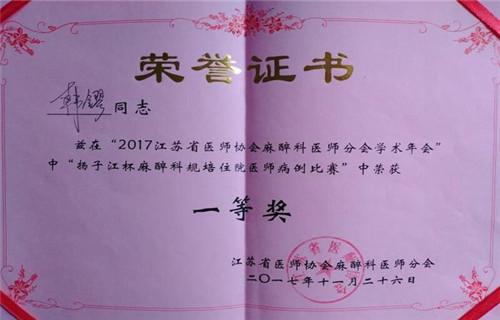 荣誉证书
韩镠同志
兹在“2017江苏省医师协会麻醉科医师分会学术年会”
中“扬子江杯麻醉科规培住院医师病例比赛”中荣获
一等奖
江苏省医师协会麻醉科医师分会
二〇一七年十一月二十六日
省医师